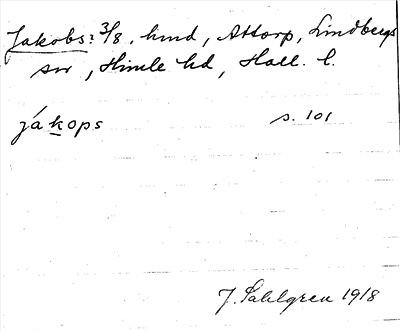 Jakobs: 3/8. hmd, Attorp, Lindbergs
sn, Himle hd, Hall. l.
jákops s. 101
J. Sahlgren 1918